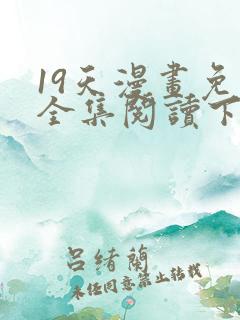 19天漫畫免
全集閱讀下
呂緒蘭
未经同意禁止转载